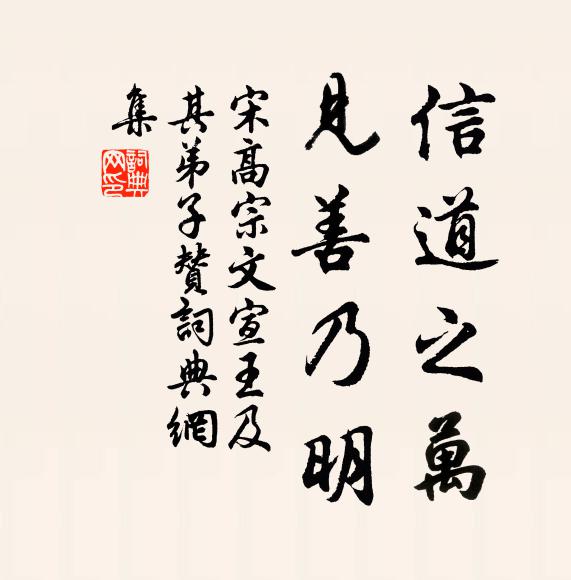 信道之萬
見善乃明
宋高宗文宣王及
其弟子贊詞典網
集
詞典網印